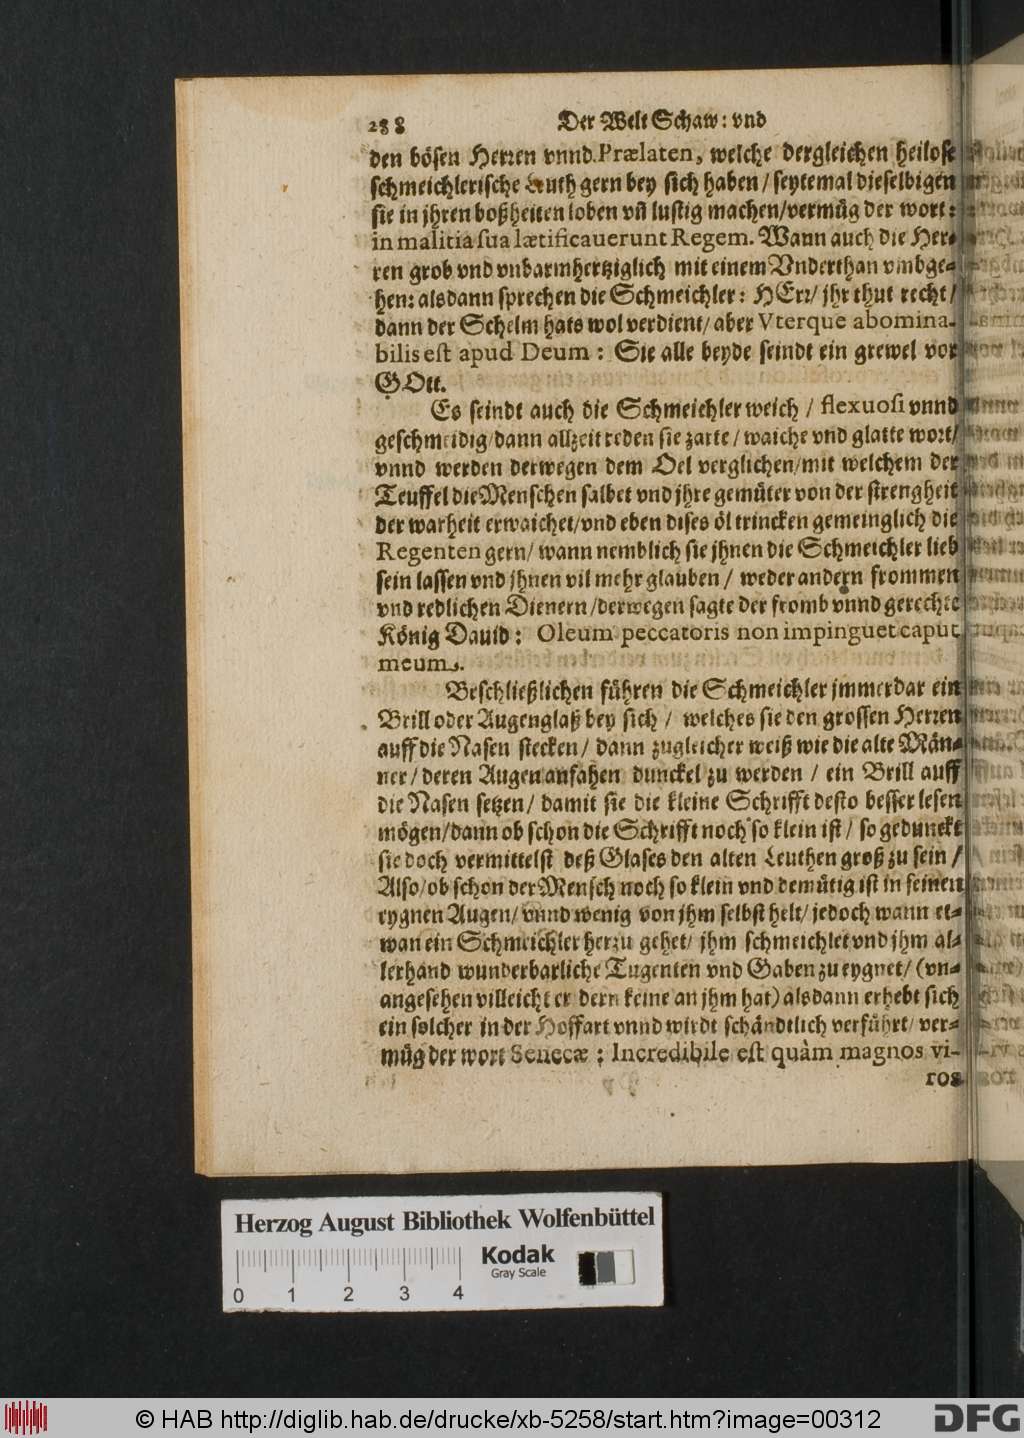 288 Der Welt Schaw: vnd
den bösen Herren vnnd Prælaten, welche dergleichen heilose
schmeichlerische Leuth gern bey sich haben / seytemal dieselbigen
sie in jhren boßheiten loben vñ lustig machen/vermüg der wort:
in malitia sua lætificauerunt Regem. Wann auch die Her-
ren grob vnd vnbarmhertziglich mit einem Vnderthan vmbge-
hen: alsdann sprechen die Schmeichler: HErr/ jhr thut recht/
dann der Schelm hats wol verdient/ aber Vterque abomina-
bilis est apud Deum: Sie alle beyde seindt ein grewel vor
GOtt.
Es seindt auch die Schmeichler weich / flexuosi vnnd
geschmeidig/dann allzeit reden sie zarte / waiche vnd glatte wort/
vnnd werden derwegen dem Oel verglichen/mit welchem der
Teuffel die Menschen salbet vnd jhre gemüter von der strengheit
der warheit erwaichet/vnd eben dises öl trincken gemeinglich die
Regenten gern/ wann nemblich sie jhnen die Schmeichler lieb
sein lassen vnd jhnen vil mehr glauben / weder andern frommen
vnd redlichen Dienern/derwegen sagte der fromb vnnd gerechte
König Dauid: Oleum peccatoris non impinguet caput
meum.
Beschließlichen führen die Schmeichler jmmerdar ein
Brill oder Augenglaß bey sich / welches sie den grossen Herren
auff die Nasen stecken/ dann zugleicher weiß wie die alte Män-
ner/ deren Augen anfahen dunckel zu werden / ein Brill auff
die Nasen setzen/ damit sie die kleine Schrifft desto besser lesen
mögen/dann ob schon die Schrifft noch so klein ist / so gedunckt
sie doch vermittelst deß Glases den alten Leuthen groß zu sein /
Also/ob schon der Mensch noch so klein vnd demütig ist in seinen
eygnen Augen/ vnnd wenig von jhm selbst helt/ jedoch wann et-
wan ein Schmeichler herzu gehet/ jhm schmeichlet vnd jhm al-
lerhand wunderbarliche Tugenten vnd Gaben zu eygnet/ (vn-
angesehen villeicht er dern keine an jhm hat) alsdann erhebt sich
ein solcher in der Hoffart vnnd wirdt schändtlich verführt/ ver-
müg der wort Senecæ: Incredibile est quàm magnos vi-
ros
Herzog August Bibliothek Wolfenbüttel
Kodak
Gray Scale
0 1 2 3 4
© HAB http://diglib.hab.de/drucke/xb-5258/start.htm?image=00312
DFG